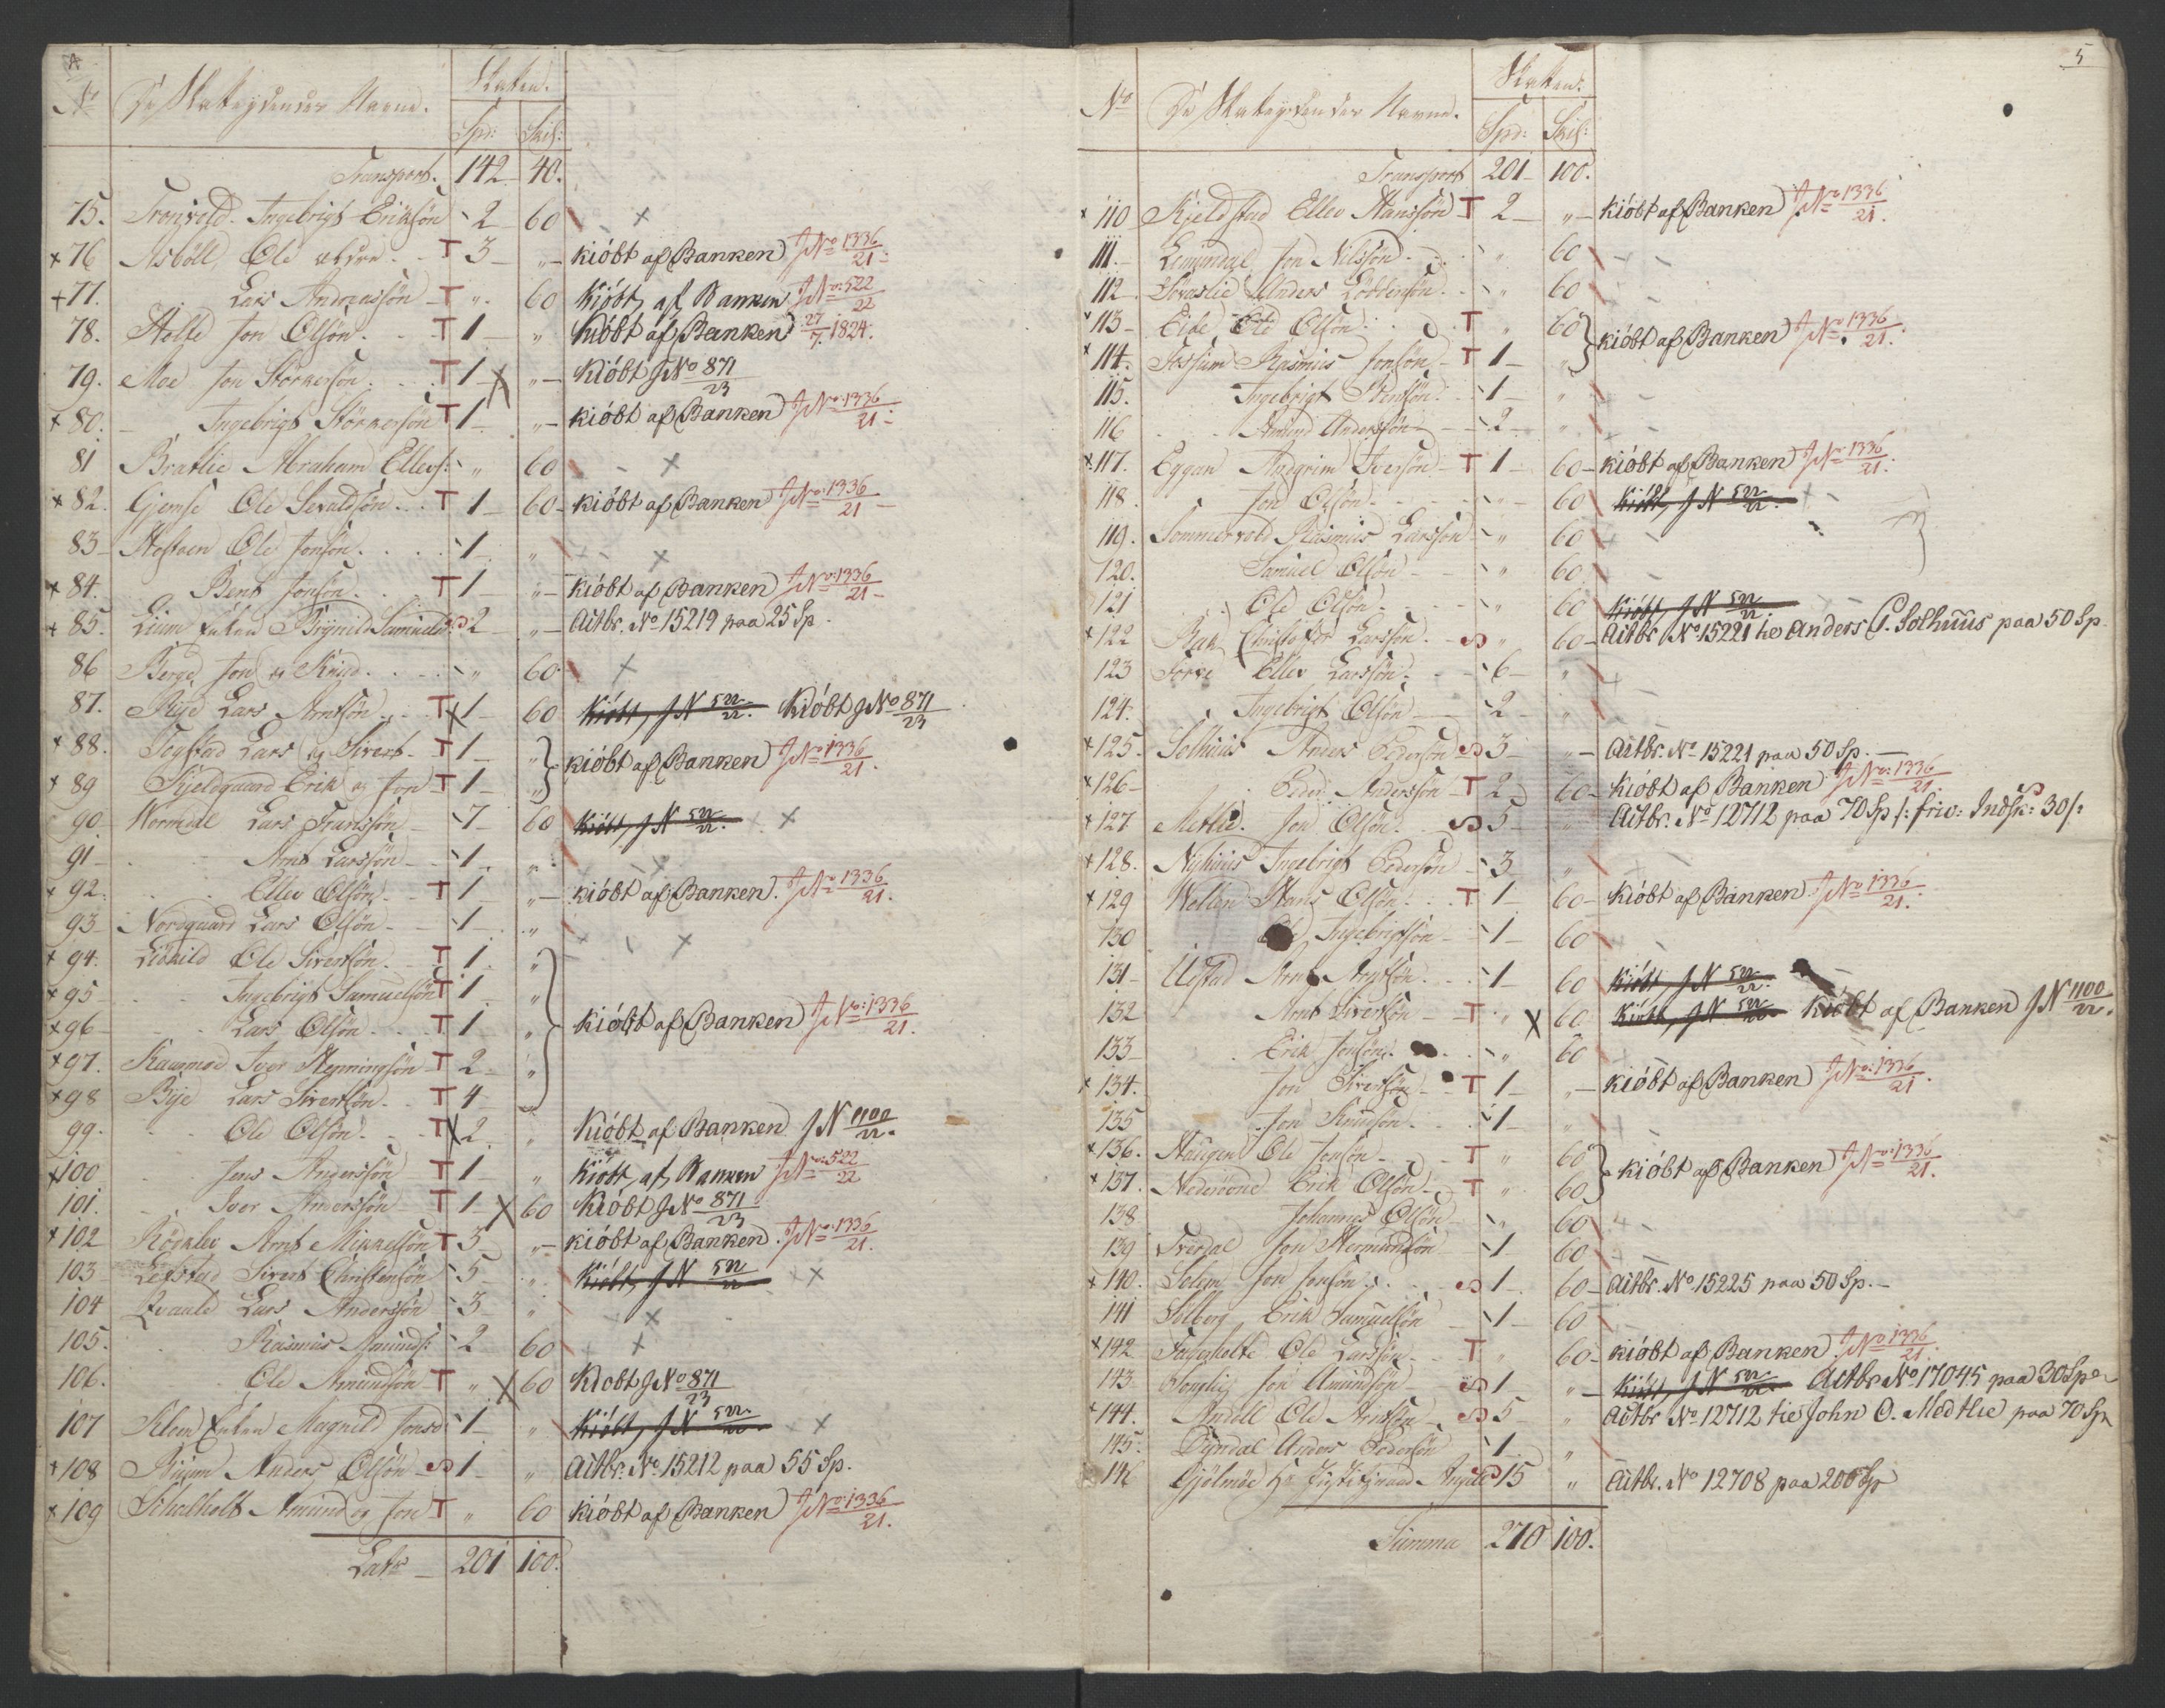 No De Skatteydendes Navne. Skatten.
Spd: Skil:
Transport. 142 40.
75. Ingebrigt Eriksøn 2 60
76 Asbøll, Ole ældre T 3 " kiöbt af Banken JNo 1336/21
77. Lars Andreassøn T " 60 Kjøbt af Banken JNo 522/22
78. Holte Jon Olsøn T 1 " Kiöbt af Banken 27/7 1824.
79. Moe Jon Størkersøn T 1 " Kiöbt JNo 871/23
80. Ingebrigt Størkersøn T 1 " kiöbt af Banken JNo 1336/21
81 Bratlie Abraham Ellevs: " 60
82. Gjemse Ole Sevaldsøn T 1 60 kiöbt af Banken JNo 1336/21
83 Ole Jonsøn 1 "
84. Bent Jonsøn T 1 " kiöbt af Banken JNo 1336/21
85. Lium Enken Brynild Samuels: 2 " Actbr. No 15219 paa 25 Sp.
86 Berge Jon og Knud " 60
87. Rye Lars Arntsøn T 1 60 Kiöbt, J N 522/22. Kiöbt JNo 871/23
88. Togstad Lars og Sivert T 1 "
89 Kjeldgaard Erik og Jon T 1 " kiöbt af Banken JNo 1336/21.
90 Wormdal Lars Franssøn 7 60 Kiöbt, J N 522/22.
91 Arnt Larssøn 1 "
92. Ellev Olsøn T 1 " kiöbt af Banken. JNo 1336/21.
93 Nordgaard Lars Olsøn 1 "
94. Ole Sivertsøn T 1 "
95 Ingebrigt Samuelsøn T 1 "
96 Lars Olsøn T 1 " kiöbt af Banken JNo 1336/21.
97. Iver Henningsøn T 2 "
98 Bye Lars Sivertsøn T 4
99. Ole Olsøn T 2 " Kiöbt af Banken J N 1100/22.
100 Jens Anderssøn T 1 " Kiöbt af Banken JNo 522/22
101. Iver Anderssøn T 1 60 Kiöbt JNo 871/23
102 Arnt Mikkelsøn T 3 " kiöbt af Banken. JNo 1336/21.
103 Lefstad Sivert Christensøn 5 " Kiöbt, J N 522/22
104 Qvaale Lars Anderssøn 3 "
105. Rasmus Amunds: 2 60
106. Ole Amundsøn T " 60 Kiöbt JNo 871/23
107 Enken Magnild Jons: 1 " Kiöbt, J N 522/22
108 Anders Olsøn 1 " Actbr. No 15212 paa 55 Sp.
109 Skalholt Amund og Jon T " 60 kiöbt af Banken JNo 1336/21.
Lats 201 100.
5
No De Skatteydendes Navne. Skatten:
Spd: Skil:
Transport 201 100.
110 Kjeldstad Ellev Hanssøn T 2 " kiöbt af Banken JNo 1336/21.
111. Jon Nilssøn " 60
112 Anders " 60
113 Eide Ole Olsøn T " 60
114. Fossum Rasmus Jonsøn T 1 " kiöbt af Banken JNo 1336/21.
115. Ingebrigt 1 "
116 Amund Anderssøn 2 "
117. Eggan Iversøn T 1 60 kiöbt af Banken JNo 1336/21.
118. Jon Olsøn " 60 Kiöbt, J N 522/22.
119. Sommervold Rasmus Larssøn " 60
120. Samuel Olsøn " 60
121 Ole Olsøn " 60 Kiöbt, J N 522/22.
122 Christopher Larssøn " 60 Actbr. No 15221 tie Anders P. Solhuus paa 50 Sp.
123 Ellev Larssøn 6 "
124. Ingebrigt Olsøn 2 "
125. Solhuus Anders Pedersøn 3 " Actbr. No 15221 paa 50 Sp.
126 Peder Anderssøn T 2 60 kiöbt af Banken JNo 1336/21
127 Metlie. Jon Olsøn 5 " Actbr. No 12712 paa 70 Sp /: friv: Indsk: 30/:
128. Nyhuus Ingebrigt Pedersøn 3 "
129 Hans Olsøn T 1 60 kiöbt af Banken. JNo 1336/21.
130 Ole Ingebrigtsøn 1 60
131 Ustad Arnt Arntsøn 1 60 Kiöbt, J N 522/22.
132 Arnt Sivertsøn T " 60 Kiöbt, J N 522/22 Kiöbt af Banken J N 1100/22.
133 Erik Jonsøn " 60
134. Jon Sivertsøn T 1 " kiöbt af Banken JNo 1336/21.
135 Jon Knudsøn 1 "
136. Haugen Ole Jonsøn T " 60
137. Erik Olsøn T " 60 kiöbt af Banken JNo 1336/21.
138 Johannes Olsøn " 60
139 Jon 1 60
140. Solem Jon Jonsøn 1 60 Actbr. No 15225 paa 50 Sp.
141 Solberg Erik Samuelsøn 1 60
142 Ole Larssøn T " 60 kiöbt af Banken JNo 1336/21.
143 Jon Amundsøn 1 " Kiöbt, J N 522/22 Actbr No 17045 paa 30 Spe
144. Ole 5 " Actbr No 12712 tie John O. Medtlie paa 70 Sp
145. Anders Pedersøn 1 "
146 Gjølmøe Hr Justitsraad Angell 15 " Actbr. No 12708 paa 200 Sp
Summa 270 100.